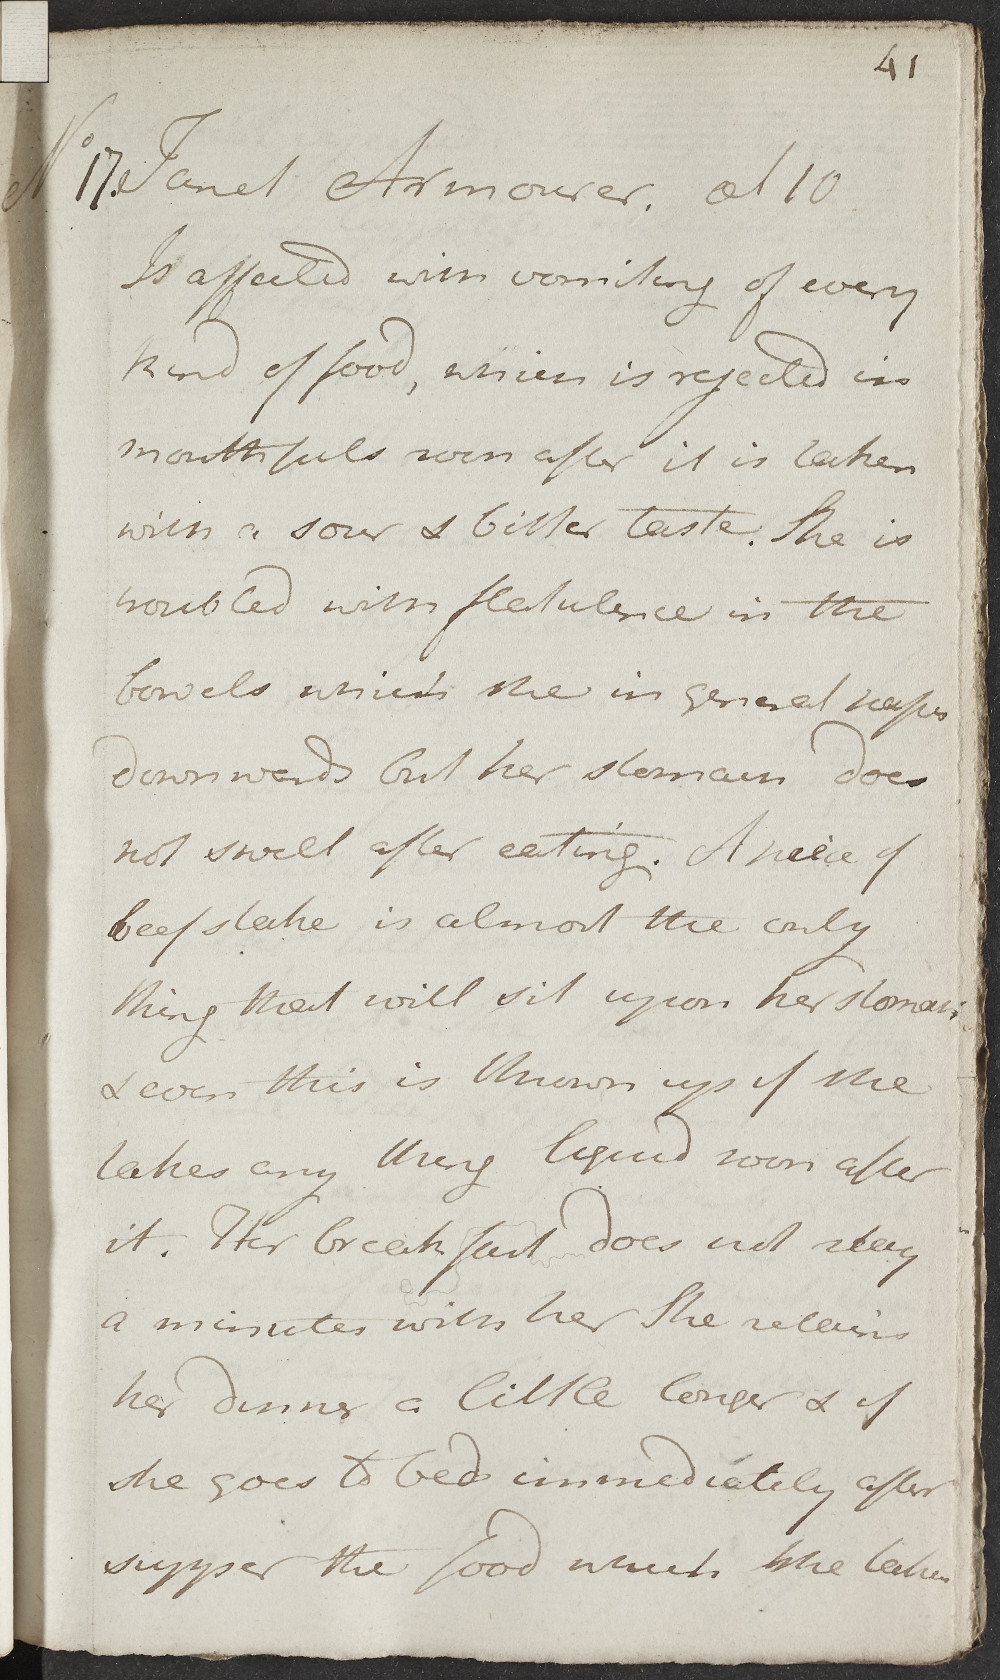 41
No 17. Janet Armourer. æt 10
Is affected with vomiting of every
kind of food, which is rejected in
mouthfuls soon after it is taken
with a sour & bitter taste. She is
troubled with flatulence in the
bowels which she in general passes
downwards but her stomach does
not swell after eating. A peice of
beefstake is almost the only
thing that will sit upon her stomach
& even this is thrown up if she
takes any thing liquid soon after
it. Her breakfast does not stay
a minutes with her She retains
her dinner a little longer & if
she goes to bed immediately after
supper the food which she takes